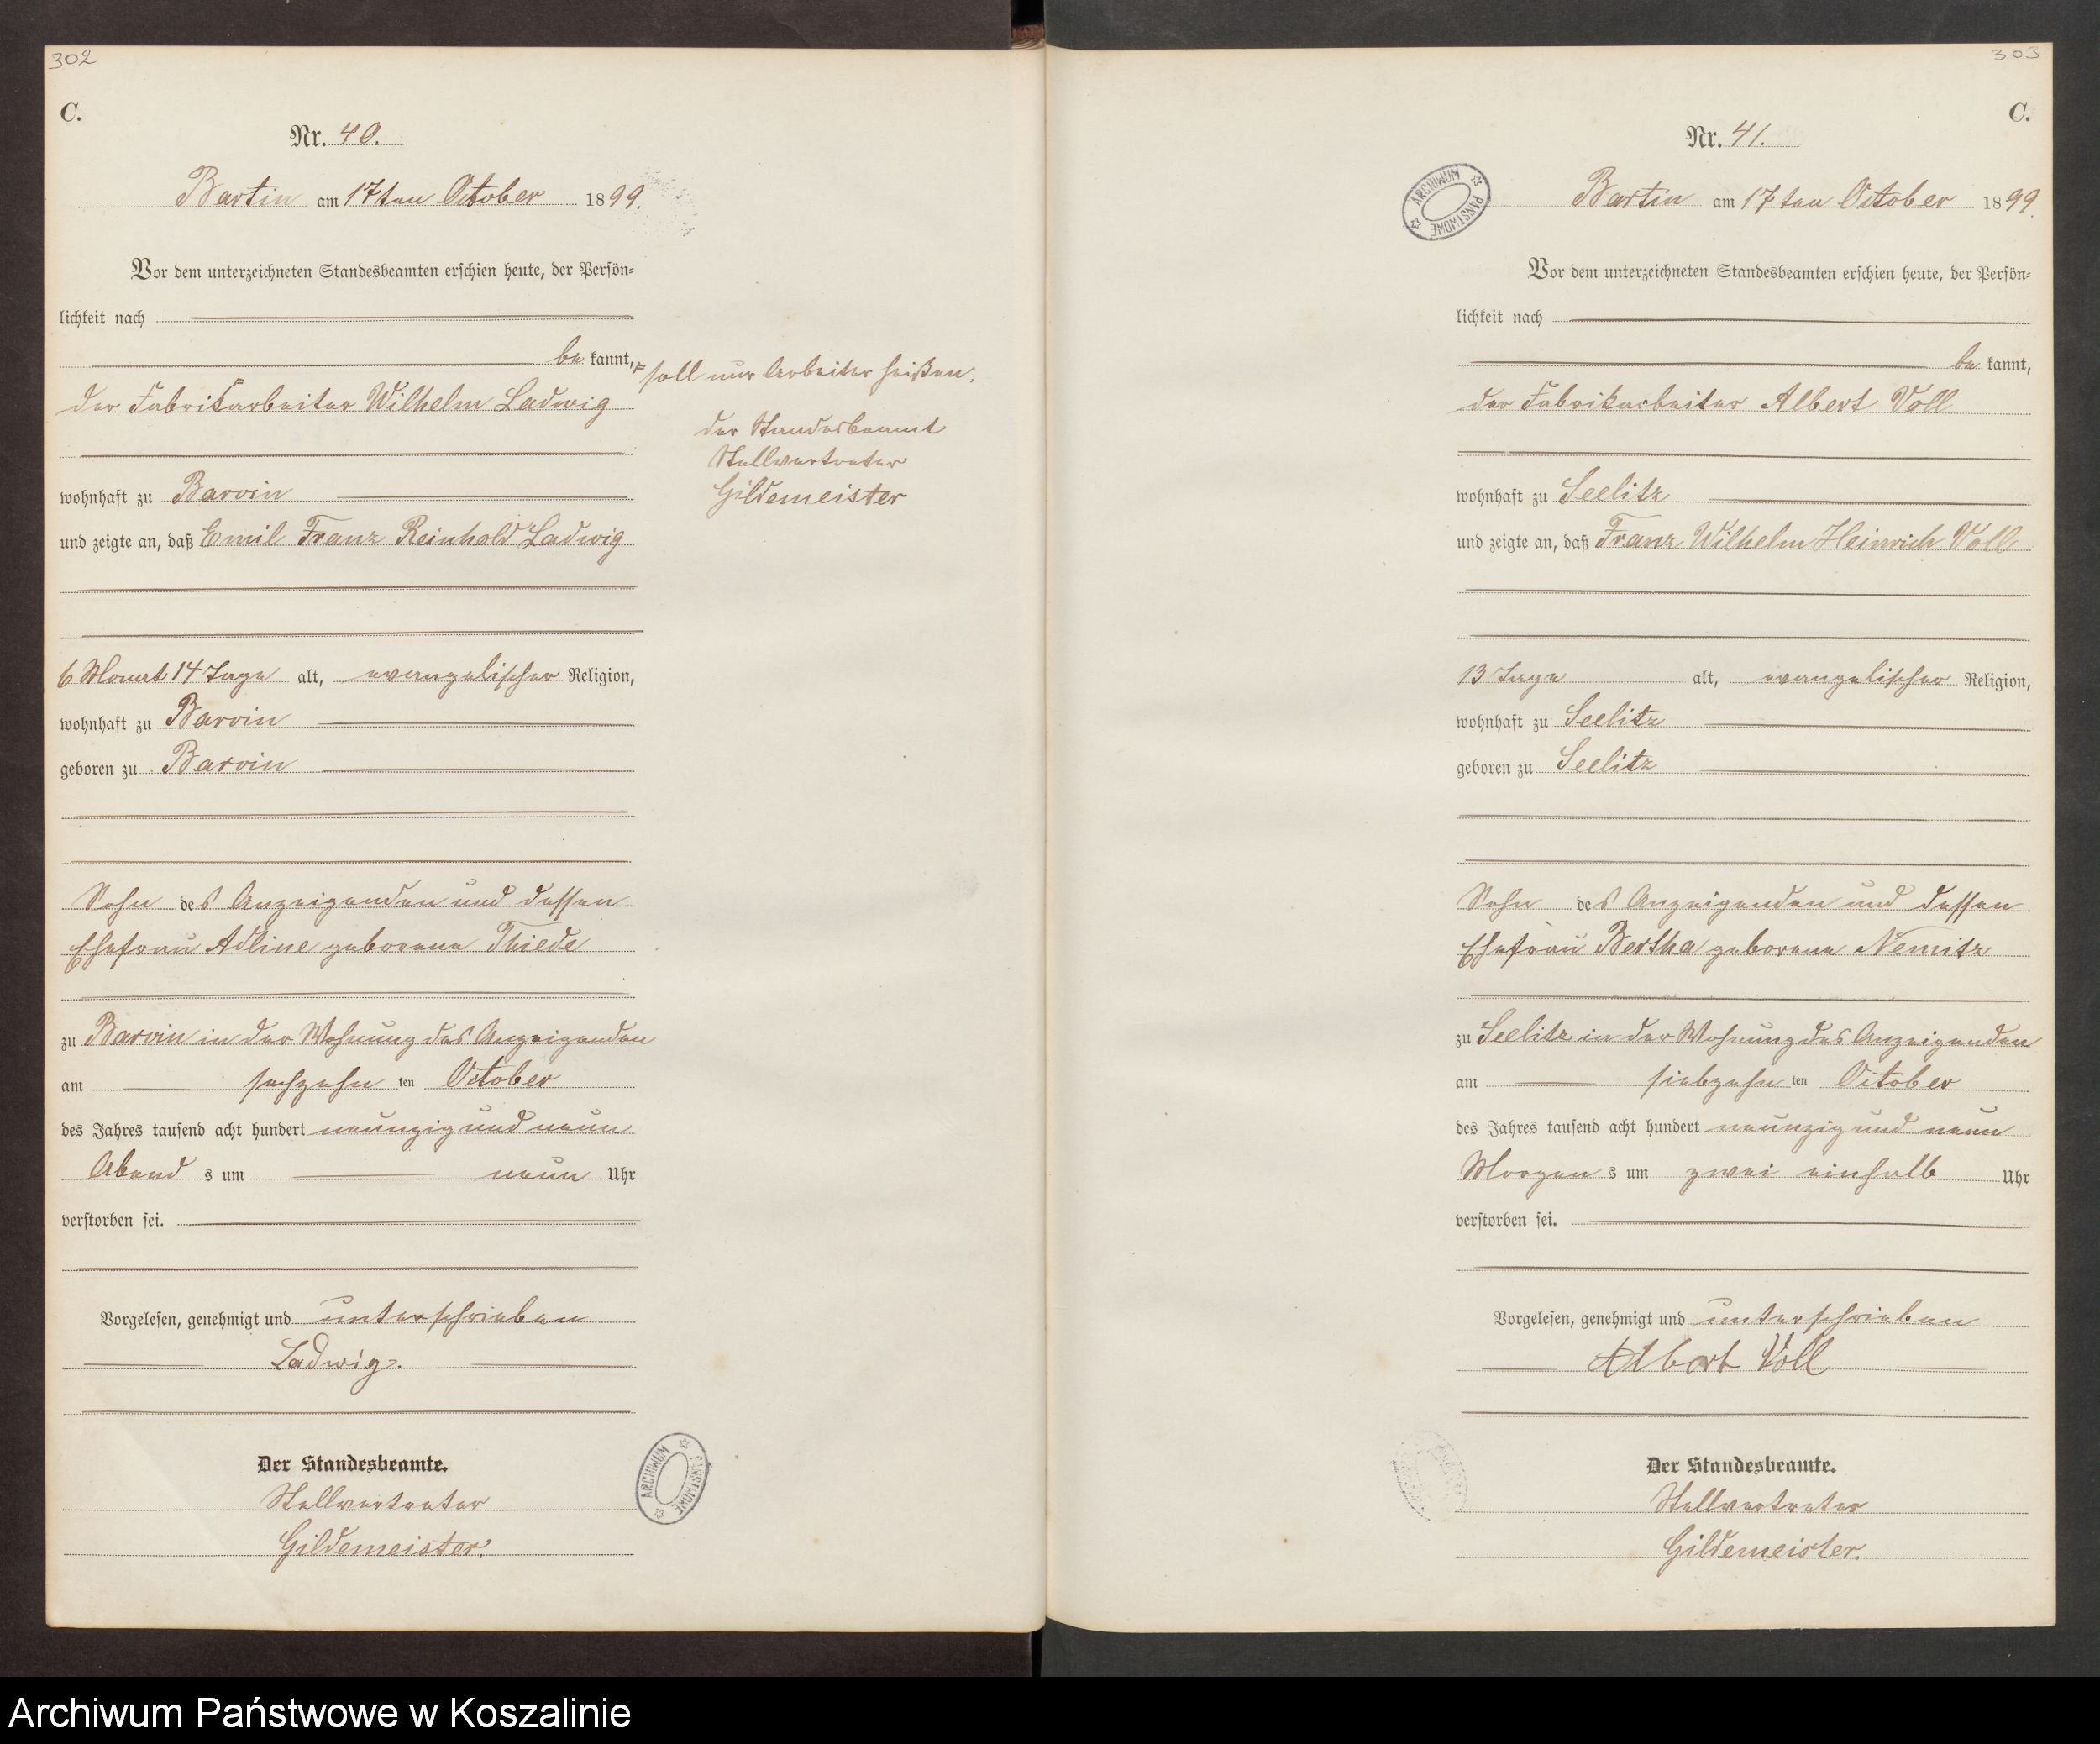 302
C.
Nr. 40.
Bartin am 17ten October 1899.
Vor dem unterzeichneten Standesbeamten erschien heute, der Persön-
lichkeit nach
be kannt,
der Fabrikarbeiter Wilhelm Ladwig
wohnhaft zu Barvin
und zeigte an, daß Emil Franz Reinhold Ladwig
6 Monat 14 Tage alt, evangelischer Religion,
wohnhaft zu Barvin
geboren zu Barvin
Sohn des Anzeigenden und dessen
Ehefrau Adline geborene Thiede
zu Barvin in der Wohnung des Anzeigenden
am sechzehn ten October
des Jahres tausend acht hundert neunzig und neun
Abend s um neun Uhr
verstorben sei.
Vorgelesen, genehmigt und unterschrieben
Ladwig.
Der Standesbeamte.
Stellvertreter
Gildemeister.
soll nur Arbeiter heißen.
der Standesbeamt
Stellvertreter
Gildemeister
ARCHIWUM PAŃSTWOWE
303
C.
Nr. 41.
ARCHIWUM PAŃSTWOWE
Bartin am 17ten October 1899.
Vor dem unterzeichneten Standesbeamten erschien heute, der Persön-
lichkeit nach
be kannt,
der Fabrikarbeiter Albert Voll
wohnhaft zu Seelitz
und zeigte an, daß Franz Wilhelm Heinrich Voll
13 Tage alt, evangelischer Religion,
wohnhaft zu Seelitz
geboren zu Seelitz
Sohn des Anzeigenden und dessen
Ehefrau Bertha geborene Nemitz
zu Seelitz in der Wohnung des Anzeigenden
am siebzehn ten October
des Jahres tausend acht hundert neunzig und neun
Morgen s um zwei einhalb Uhr
verstorben sei.
Vorgelesen, genehmigt und unterschrieben
Albert Voll
Der Standesbeamte.
Stellvertreter
Gildemeister.
Archiwum Państwowe w Koszalinie